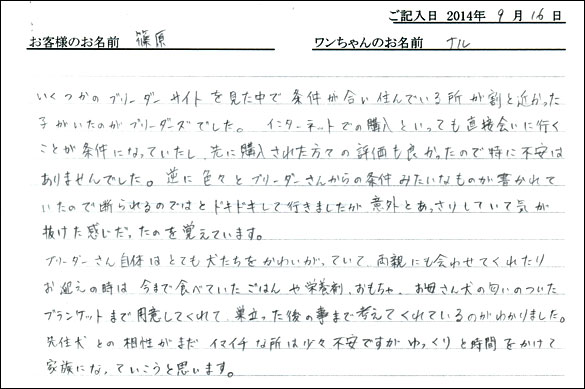 ご記入日 2014年 9月 16日
お客様のお名前 篠原 ワンちゃんのお名前 ナル
いくつかのブリーダーサイトを見た中で条件が合い住んでいる所が割と近かった
子がいたのがブリーダーズでした。 インターネットでの購入といっても直接会いに行く
ことが条件になっていたし、先に購入された方々の評価も良かったので特に不安は
ありませんでした。逆に色々とブリーダーさんからの条件みたいなものが書かれて
いたので断られるのではとドキドキして行きましたが意外とあっさりしていて気が
抜けた感じだったのを覚えています。
ブリーダーさん自体はとても犬たちをかわいがっていて、両親にも会わせてくれたり
お迎えの時は今まで食べていたごはんや栄養剤、おもちゃ、お母さん犬の匂いのついた
ブランケットまで用意してくれて、巣立った後の事まで考えてくれているのがわかりました。
先住犬との相性がまだイマイチな所は少々不安ですがゆっくりと時間をかけて
家族になっていこうと思います。